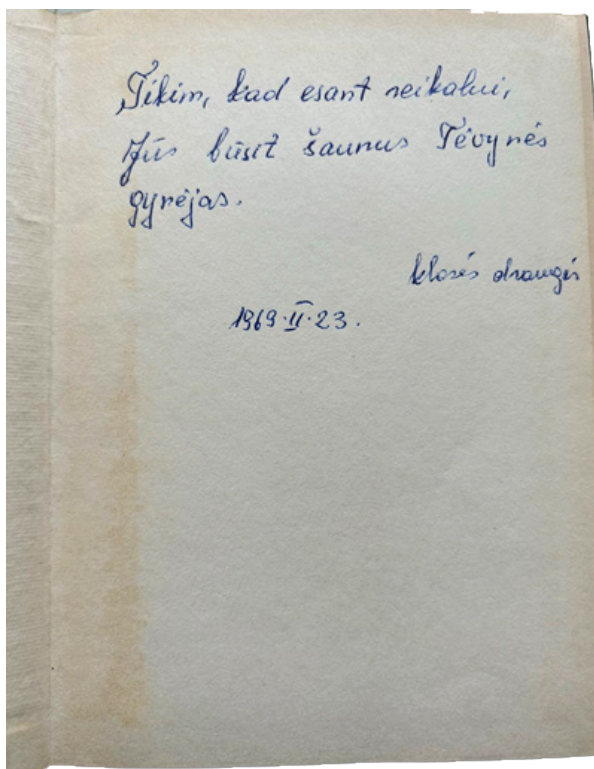 Tikim, kad esant reikalui,
Jūs būsit šaunus Tėvynės
gynėjas.
klasės draugės
1969·II·23.